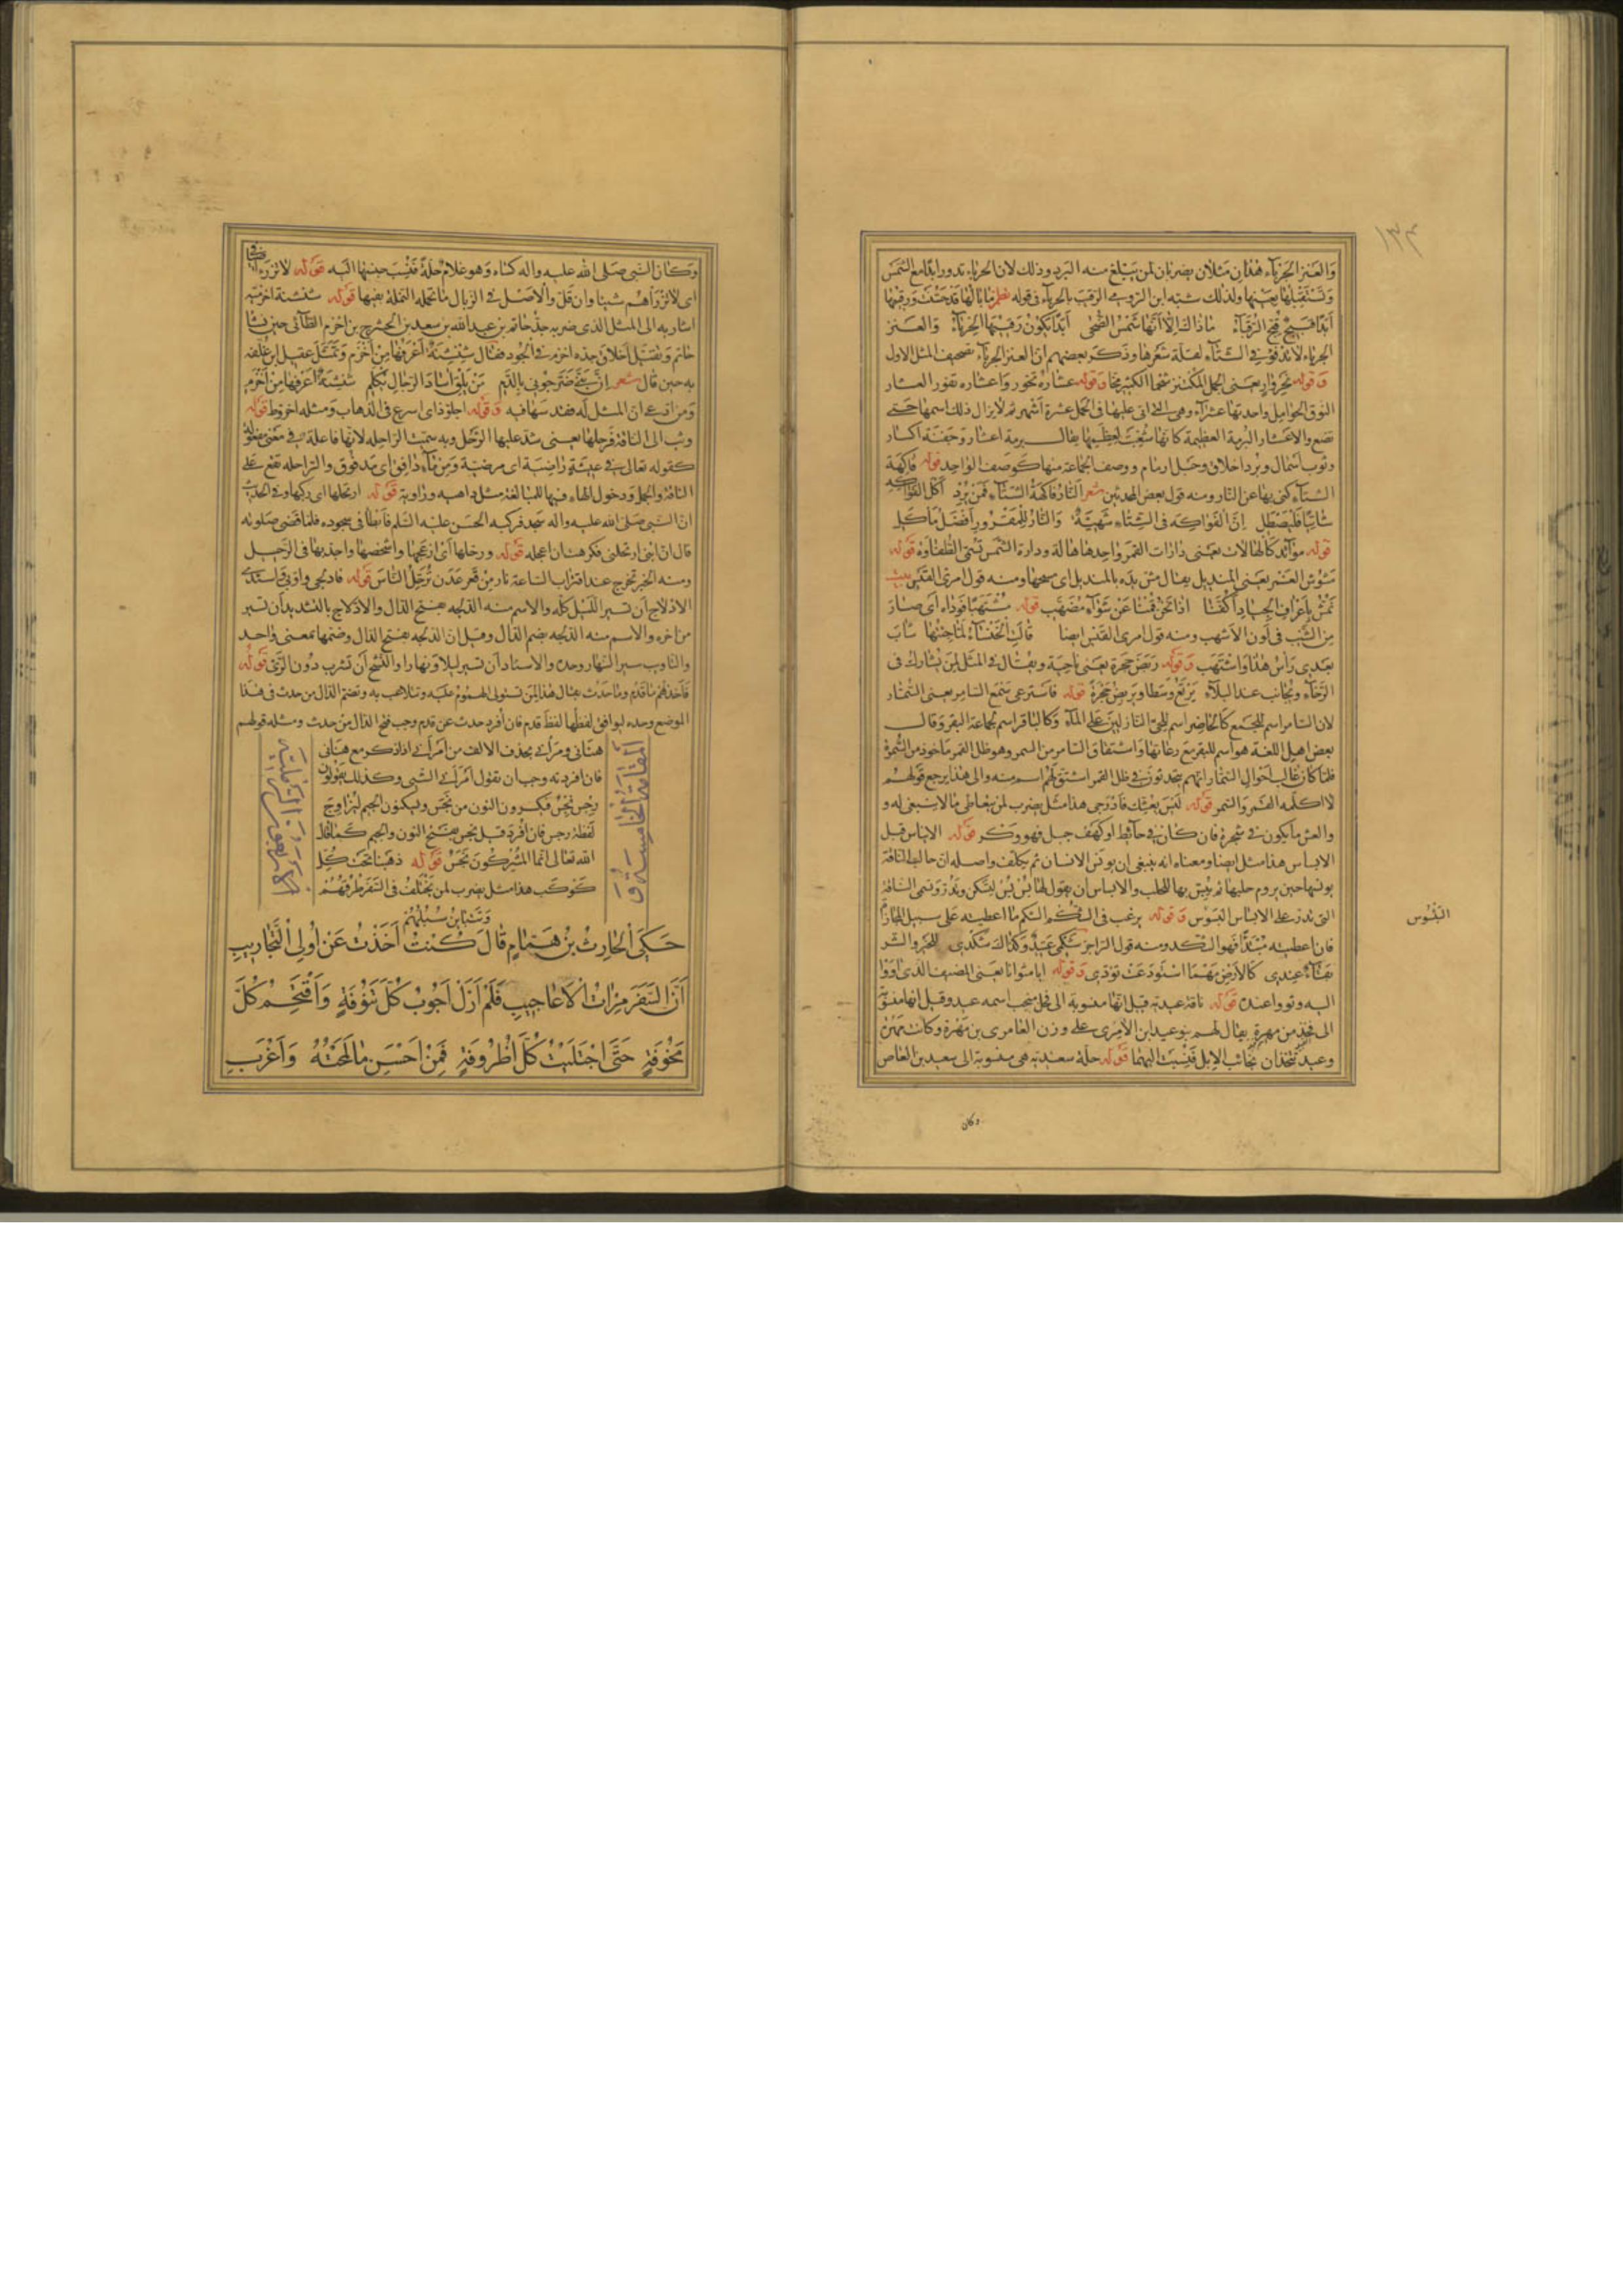 ١٣٣
وَالعَنز الجَرْبَاء هذان مَثَلان يضربان لمن يَبْلغ منه البَرد وذلك لان الحرباء تدور ابدًا مع الشمس
وَتَسْتَقْبِلُهَا بِعَيْنِهَا ولذلك شبّه ابن الرّومي الرّقيب بالحرباء في قوله نظم مَا بَالُهَا قَدْ حُسِّنَتْ وَرَقِيبُهَا
أَبَدًا قَبِيحٌ قُبِّحَ الرُّقَبَاءُ مَا ذَاكَ اِلَّا أَنَّهَا شَمْسُ الضُّحَى أَبَدًا يَكُونُ رَقِيبُهَا الحِرْبَاءُ وَالعَنز
الجرباء لا تدفؤ في الشتاء لقلّة شعرها وذكر بعضهم انّ العنز الجرباء تصحيف المثل الاول
وَقوله نحر وار يعنى الجمل المكتنز شحما الكثير مخا وَقوله عشاره تخور واعشاره تفور العشار
النوق الحوامل واحدتها عشراء وهي التي اتى عليها في الحمل عشرة أشهر ثم لا يزال ذلك اسمها حتى
تضع والاعشار البرمة العظيمة كانها شعبت لعظمها يقال برمة اعشار وجفنة اكسار
وثوب اسمال وبرد اخلاق وحبل ارمام ووصف الجماعة منها كوصف الواحد قوله فاكهة
الشتاء كنى بها عن النار ومنه قول بعض المحدثين شعر النَّارُ فَاكِهَةُ الشِّتَاءِ فَمَنْ يُرِدْ أَكْلَ الفَوَاكِهِ
شَاتِيًا فَلْيَصْطَلِ إِنَّ الفَوَاكِهَ فِي الشِّتَاءِ شَهِيَّةٌ وَالنَّارُ لِلْمَقْرُورِ أَفْضَلُ مَأْكَلِ
قوله موائد كالهالات يعنى دارات القمر واحدها هالة ودارة الشمس تسمّى الطفاوة قوله
مشوش الغمر يعنى المنديل يقال مش يده بالمنديل اى مسحها ومنه قول امرئ القيس بيت
نَمُشُّ بِأَعْرَافِ الجِيَادِ أَكُفَّنَا إِذَا نَحْنُ قُمْنَا عَنْ شِوَاءٍ مُضَهَّبِ قوله مُشْتَهِبًا فَوْدَاه أى صار
مِنَ الشيب في لون الاشهب ومنه قول امرئ القيس ايضا قَالَتِ الخَنْسَاءُ لَمَّا جِئْتُهَا شَابَ
بَعْدِي رَأْسُ هَذَا وَاشْتَهَبْ وَقوله رَبَضَ حَجرة يعنى ناحية ويقال في المثل لمن يشارك في
الرّخاء ويجانب عند البلاء يَرْتَعُ وَسَطًا وَيَرْبِضُ حَجْرَةً قوله فاسترعى سمع السامر يعنى السُّمّار
لان السامر اسم للجمع كالحاضر اسم للحى النازلين على الماء وكالباقر اسم لجماعة البقر وقال
بعض اهل اللغة هو اسم للبقر مع رعاتها واشتقاق السامر من السمر وهو ظل القمر ماخوذ من السُّمرة
فلمّا كان غالب احوال السّمار انهم يتحدثون في ظل القمر اشتق لهم اسم منه والى هذا يرجع قولهم
لا اكلمه القمر والسمر قوله ليس بعشك فادرجى هذا مثل يضرب لمن يتعاطى ما لا ينبغى له و
والعش ما يكون في شجرة فان كان في حائط او كهف جبل فهو وكر قوله الايناس قبل
الابساس هذا مثل ايضا ومعناه انه ينبغى ان يونس الانسان ثم يكلّف واصله ان حالب الناقة
يونسها حين يروم حلبها ثم يبسّ بها للحلب والابساس ان يقول لها بُسْ بُسْ لتسكن وتدرّ وتسمى الناقة
التى تدر على الابساس البسوس وَقوله يرغب في الشكم الشكم ما اعطيته على سبيل المجازاة
فان اعطيته مبتدئا فهو الشكد ومنه قول الراجز شُكْمِي عَتِيدٌ وَكَذَاكَ شُكْدِي للخير والشر
عِنْدِي كَالأَرْضِ مَهْمَا اسْتُودِعَتْ تُؤَدِّي وَقوله ابا مثوانا يعنى المضيف الذى أووا
اليه وثووا عنده قوله ناقة عيدية قيل انها منسوبة الى فحل منجب اسمه عيد وقيل انها منسوبة
الى فخذ من مهرة يقال لهم بنو عيد ابن الآمرى على وزن العامرى بن مهرة وكانت مهرة
وعيد تتخذان نجائب الابل فنسبت اليهما قوله حلة سعيدية هى منسوبة الى سعيد بن العاص
البَسُوس
وكان
وكان النبى صلى الله عليه واله كساه وهو غلام حلّة فنسب جنسها اليه قوله لا ترزأ
اى لا ترزأهم شيئا وان قلّ والاصل في الزبال ما تحمله النملة بفيها قوله شنشنة اخزمية
اشار به الى المثل الذى ضربه جدّ حاتم بن عبد الله بن سعد بن الحشرج بن اخزم الطائى حين نشأ
حاتم وتقيّل اخلاق جده اخزم في الجود فقال شِنْشِنَةٌ أَعْرِفُهَا مِنْ أَخْزَمِ وتمثّل عقيل ابن عُلّفه
به حين قال شعر إِنَّ بَنِيَّ ضَرَّجُونِي بِالدَّمِ مَنْ يَلْقَ آسَادَ الرِّجَالِ يُكْلَمِ شِنْشِنَةٌ أَعْرِفُهَا مِنْ أَخْزَمِ
ومن ادّعى ان المثل له فقد سها فيه وَقوله اجلوّذ اى اسرع في الذهاب ومثله اخروّط قوله
وثب الى الناقة فرحلها يعنى شدّ عليها الرّحل وبه سمّيت الراحله لانها فاعلة في معنى مفعولة
كقوله تعالى في عيشة راضية اى مرضية ومن ماء دافق اى مدفوق والراحله تقع على
الناقة والجمل ودخول الهاء فيها للمبالغة مثل داهيه وراوية قوله ارتحلها اى ركبها وفي الحديث
انّ النبى صلى الله عليه واله سجد فركبه الحسن عليه السلم فأبطأ في سجوده فلما قضى صلوته
قال ان ابنى ارتحلنى فكرهت ان اعجله قوله ورحلها اى ازعجها واشخصها واجدّ بها في الرحيل
ومنه الخبر تخرج عند اقتراب الساعة نار من قعر عدن تُرَحّل الناس قوله فادلجى واوّبى واسئدى
الادلاج أن تسير الليل كله والاسم منه الدلجه بفتح الدال والادّلاج بالتشديد أن تسير
من اخره والاسم منه الدلجه بضم الدال وقيل ان الدلجه بفتح الدال وضمها بمعنى واحد
والتاويب سير النهار وحده والاسئاد أن تسير ليلا ونهارا والنشح أن تشرب دون الرّى قوله
فأخذهم ما قدم وما حدث يقال هذا لمن تستولى الهموم عليه وتتلاعب به وتضم الدال من حدث في هذا
الموضع وحده ليوافق لفظها لفظ قدم فان أفرد حدث عن قدم وجب فتح الدال من حدث ومثله قولهم
هنأنى ومرأنى بحذف الالف من أمرأنى اذا ذكر مع هنأنى
فان افردته وجب ان تقول أمرأنى الشى وكذلك يقولون
رِجْسٌ نِجْسٌ فيكسرون النون من نجس ويسكنون الجيم ليزاوج
لفظة رجس فان افردة قيل نجس بفتح النون والجيم كما قال
الله تعالى انما المشركون نَجَسٌ قوله ذهبنا تحت كلّ
كوكب هذا مثل يضرب لمن يختلف في السّفر طرقهُم
وَتَتَبَايَنُ سُبُلُهُمْ
المقامة الخامسة و
حَكَى الحَارِثُ بْنُ هَمَّامٍ قَالَ كُنْتُ أَخَذْتُ عَنْ أُولِى التَّجَارِيبِ
أَنَّ السَّفَرَ مِرْآةُ الأَعَاجِيبِ فَلَمْ أَزَلْ أَجُوبُ كُلَّ تَنُوفَةٍ وَأَقْتَحِمُ كُلَّ
مَخُوفَةٍ حَتَّى اجْتَلَبْتُ كُلَّ أُطْرُوفَةٍ فَمِنْ أَحْسَنِ مَا لَمَحْتُهُ وَأَغْرَبِ